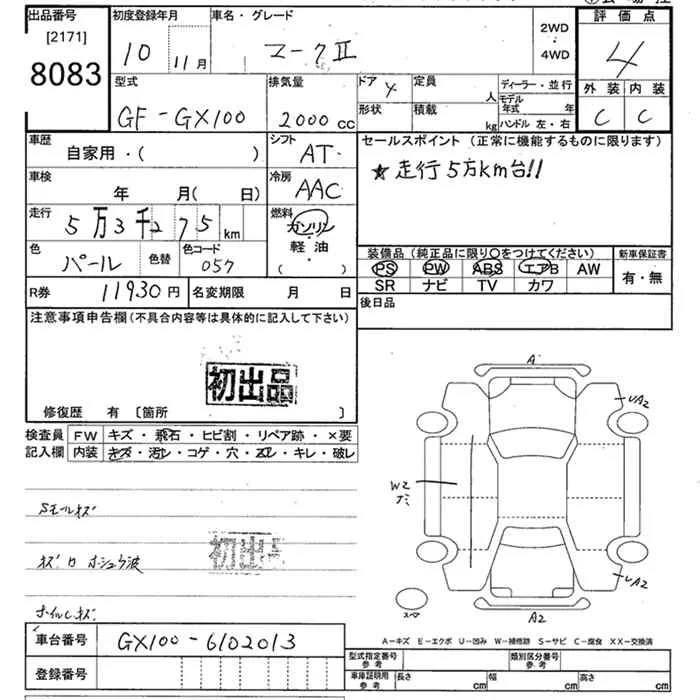 出品番号
[2171]
8083
初度登録年月
10 11月
車名・グレード
マークⅡ
2WD
・
4WD
評価点
4
外装 内装
C C
型式
GF-GX100
排気量
2000 CC
ドア 4
形状
定員 人
積載 kg
ディーラー・並行
モデル年式 年
ハンドル 左・右
車歴
自家用・( )
シフト
AT
セールスポイント (正常に機能するものに限ります)
★走行5万km台!!
車検
年 月( 日)
冷房
AAC
走行
5万3千275 km
燃料
ガソリン
・
軽・油
( )
色
パール
色替
色コード
057
装備品(純正品に限り○をつけてください)
PS PW ABS エアB AW
SR ナビ TV カワ
新車保証書
有・無
R券 11930円
名変期限 月 日
後日品
注意事項申告欄(不具合内容等は具体的に記入して下さい)
初出品
修復歴 有 〔箇所 〕
検査員記入欄
FW キズ・飛石・ヒビ割・リペア跡・×要
内装 キズ・汚レ・コゲ・穴・スレ・キレ・破レ
Sモールキズ
初出品
ホイルCキズ
A
UA2
W2
UA2
A2
スペ
車台番号 GX100-6102013
登録番号
A-キズ E-エクボ U-凹み W-補修跡 S-サビ C-腐食 XX-交換済
型式指定番号 参考
類別区分番号 参考
車庫証明用 参考
長さ cm
幅 cm
高さ cm